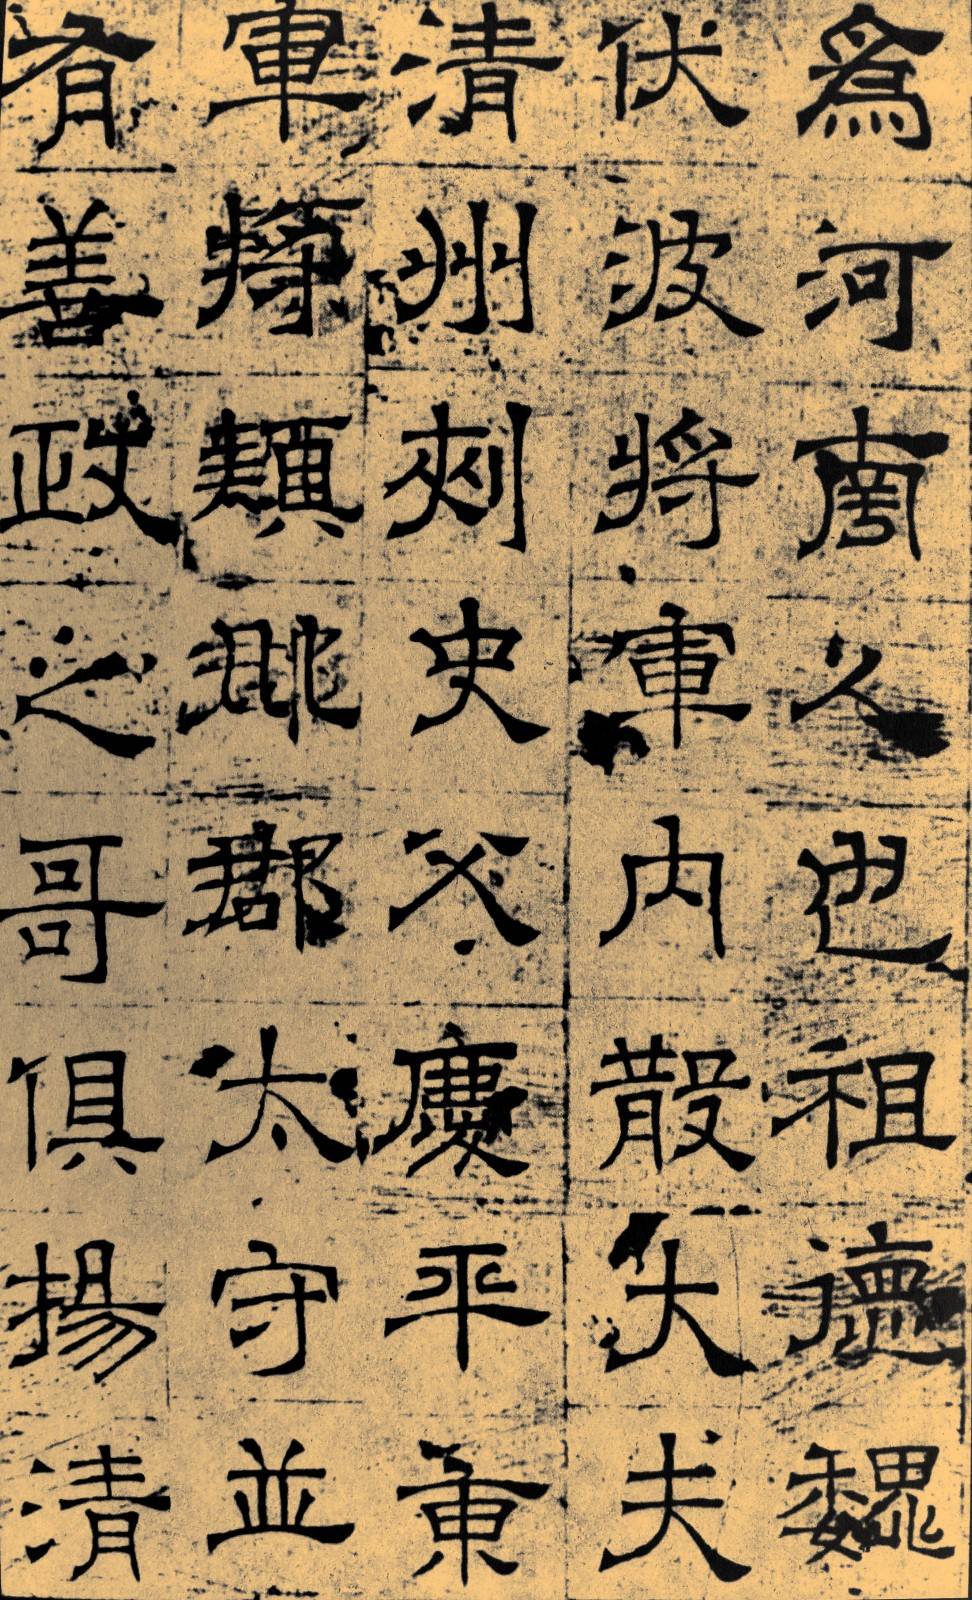 為河南人也祖德魏
伏波將軍內散大夫
清州刺史父慶平東
軍將穎郡太守並
有善政之哥俱揚清